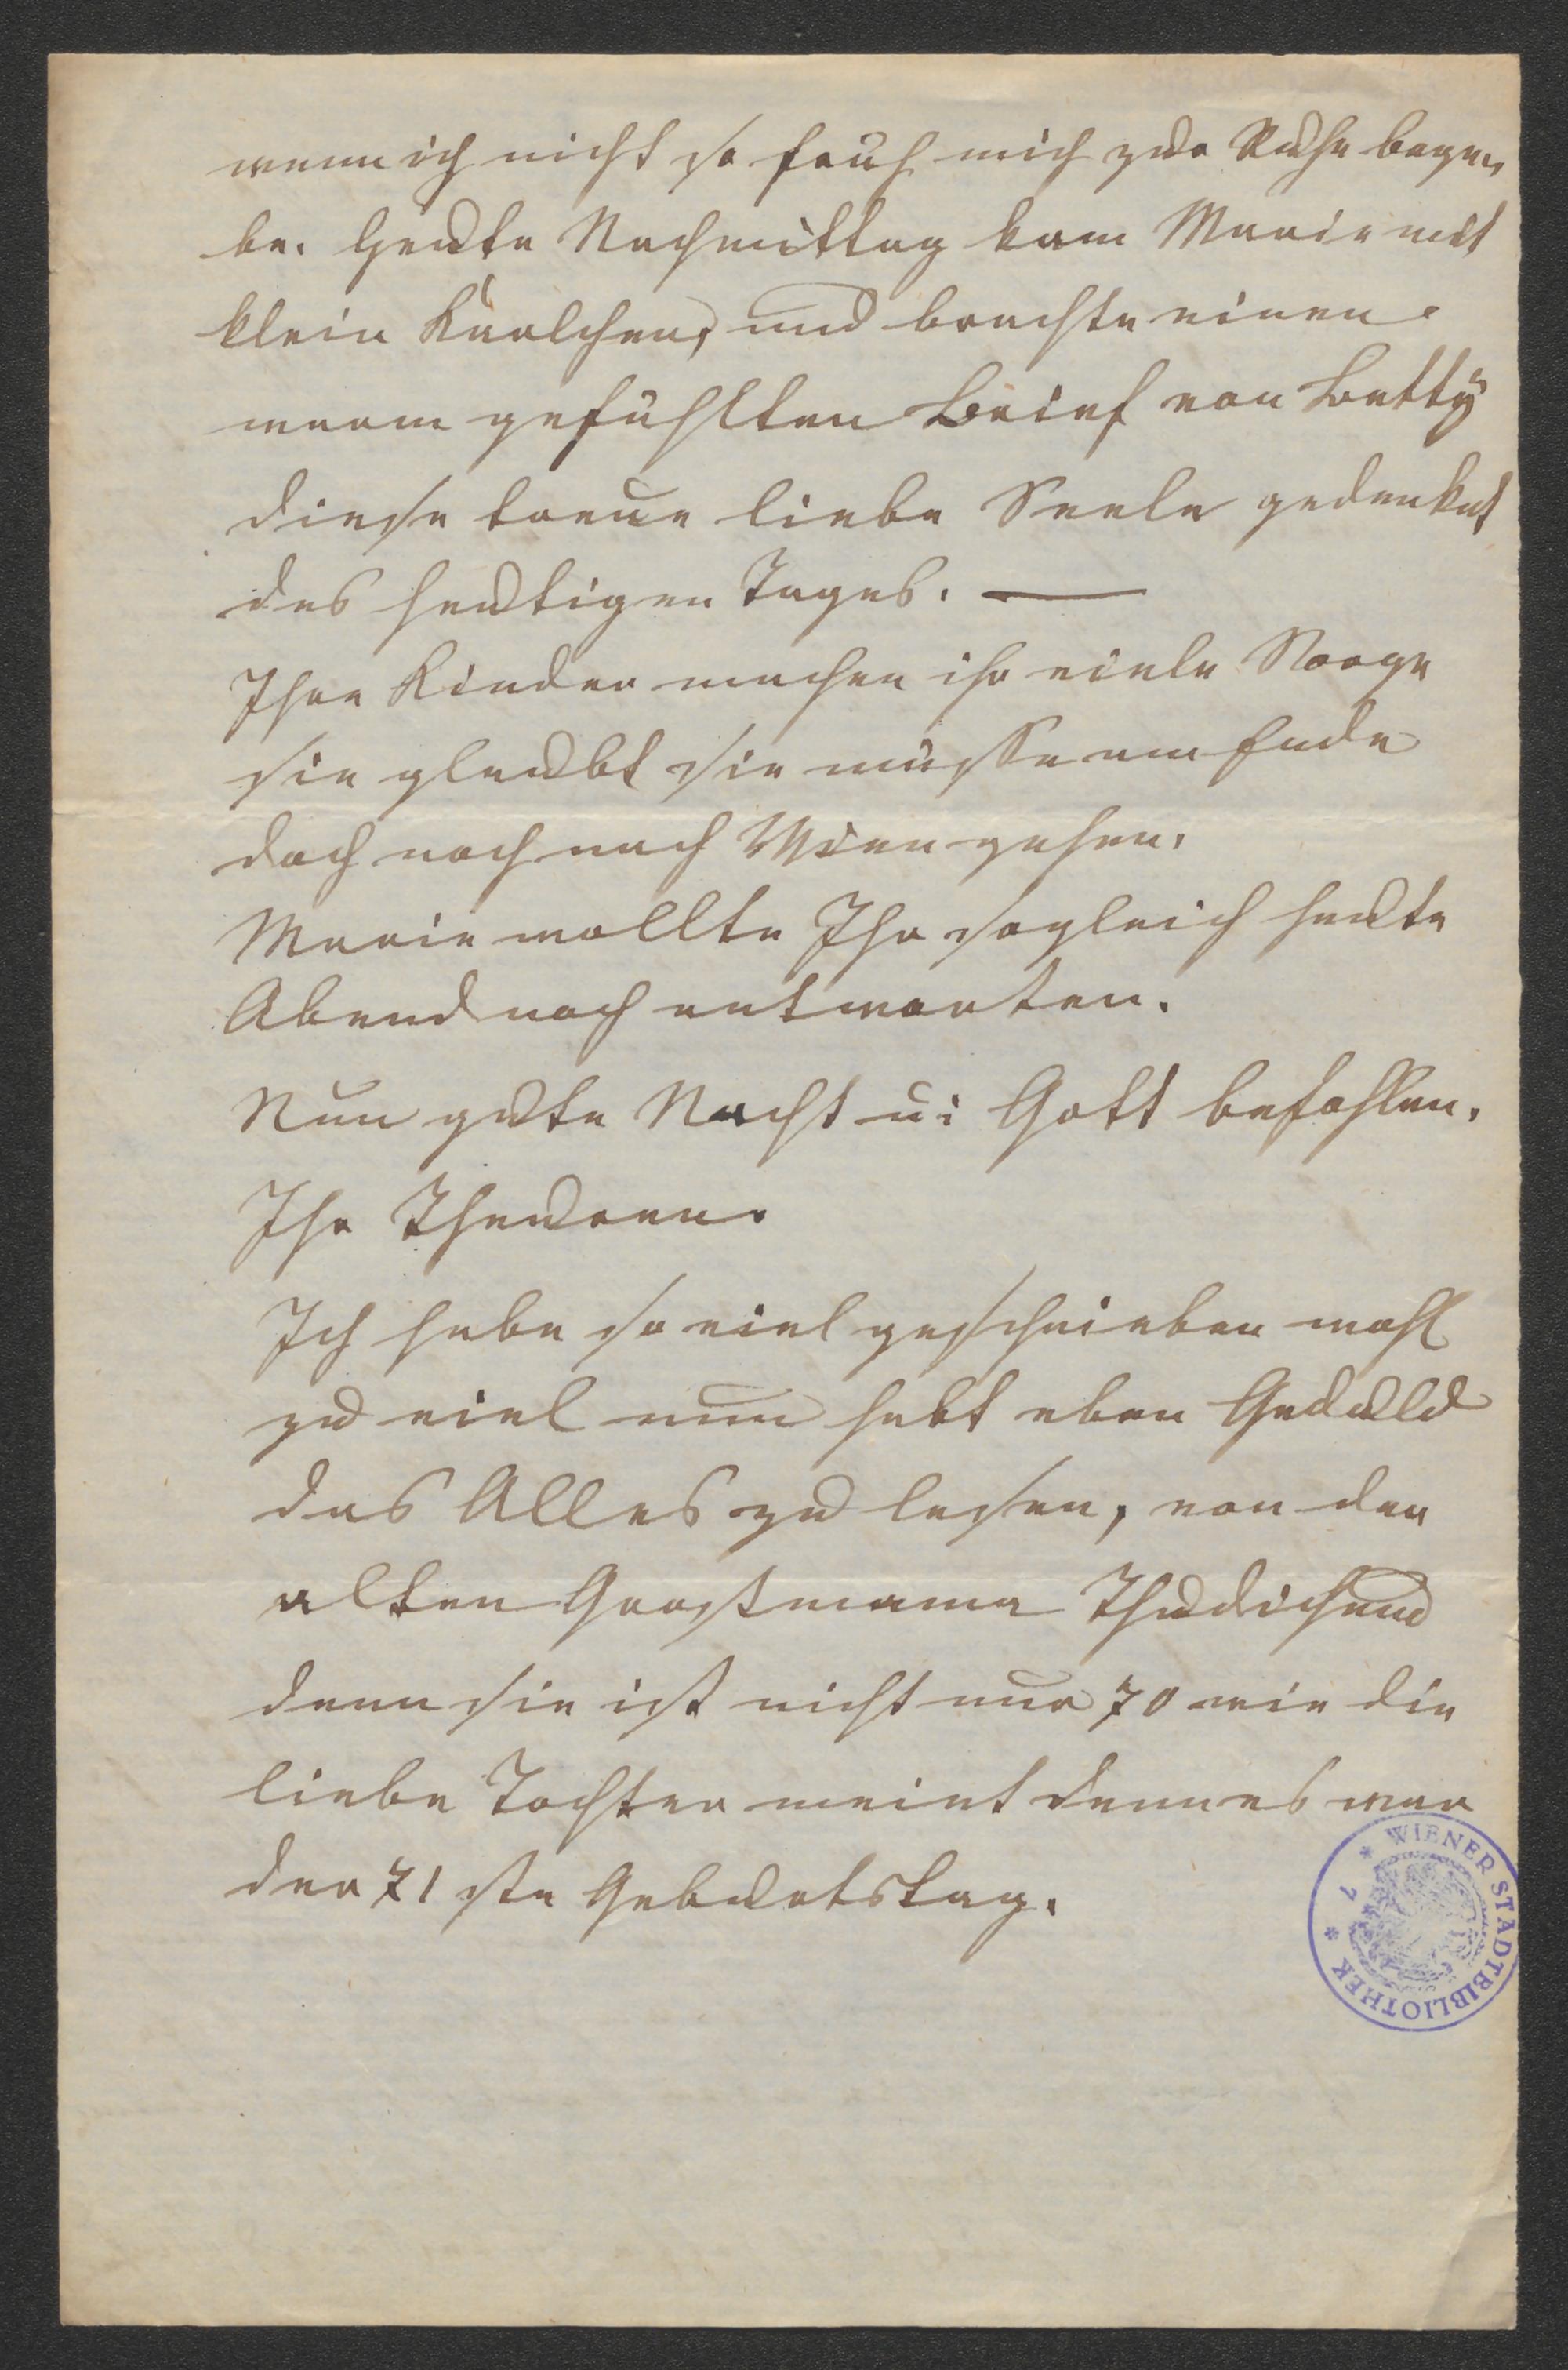 wenn ich nicht so früh mich zur Ruhe bege,
be. Heute Nachmittag kam Marie mit
klein Karlchen, und brachte einen
warm gefühlten Brief von Betty
diese treue liebe Seele gedenkt
des heutigen Tages. —
Ihre Kinder machen ihr viele Sorge
sie glaubt sie müsse am Ende
doch noch nach Wien gehen.
Marie wollte Ihr sogleich heute
Abend noch antworten.
Nun gute Nacht u: Gott befohlen.
Ihr Theuern.
Ich habe so viel geschrieben wohl
zu viel nun habt eben Geduld
das Alles zu lesen, von der
alten Grosmama Thudichum
denn sie ist nicht nur 70 wie die
liebe Tochter meint denn es war
der 71 ste Geburtstag.
* WIENER STADTBIBLIOTHEK * 7